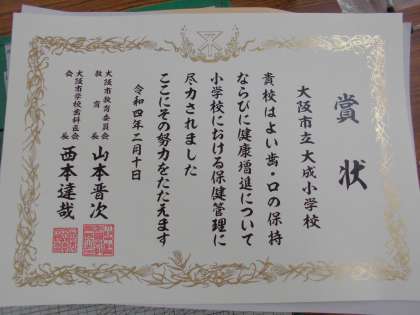 賞状
大阪市立大成小学校
貴校はよい歯・口の保持
ならびに健康増進について
小学校における保健管理に
尽力されました
ここにその努力をたたえます
令和四年二月十日
大阪市教育委員会
教育長 山本晋次
大阪市学校歯科医会
会長 西本達哉